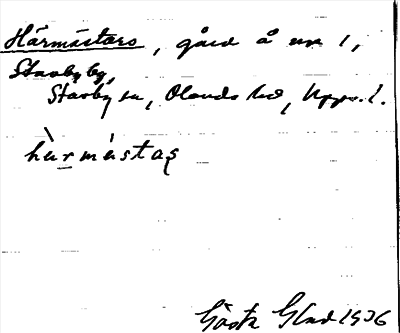 Härmästars, gård å nr 1,
Stavbyby,
Stavby sn, Olands hd, Upps. l.
hὰrmástas
Gösta Glad 1936